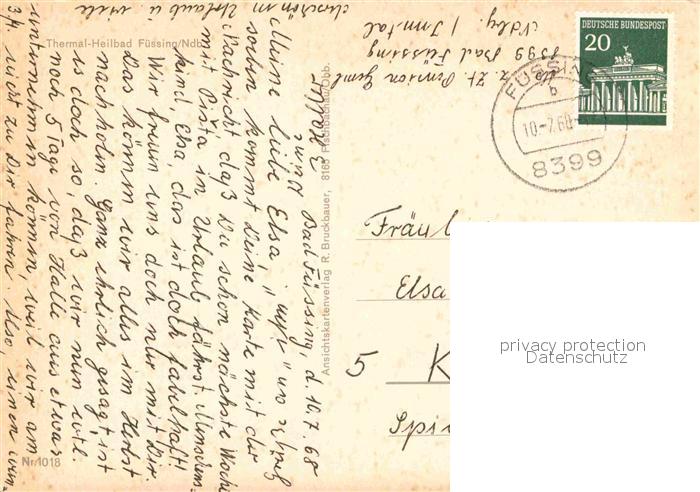 Thermal-Heilbad Füssing/Ndb.
Bad Füssing, d. 10.7.68
Meine liebe Elsa!
soeben kommt Deine Karte mit der
Nachricht daß Du schon nächste Woche
mit Pista in Urlaub fährst. Menschens-
kind, Elsa, das ist doch fabelhaft!
Wir freuen uns doch nur mit Dir.
Das können wir alles im Herbst
nachholen. Ganz ehrlich gesagt, ist
es doch so, daß wir nun evtl.
noch 5 Tage von Halle aus etwas
unternehmen können, weil wir am
3./4. nicht zu Dir fahren. Also, einen
schönen Urlaub u. viele
z. Zt. Pension
8399 Bad Füssing
Ndby. / Inntal
Nr. 1018
Ansichtskartenverlag R. Bruckbauer, 8165 Fischbachau/Obb.
DEUTSCHE BUNDESPOST
20
FÜSSING
b
10.-7.68
8399
Fräul
Elsa
5 K
Spi
privacy protection
Datenschutz